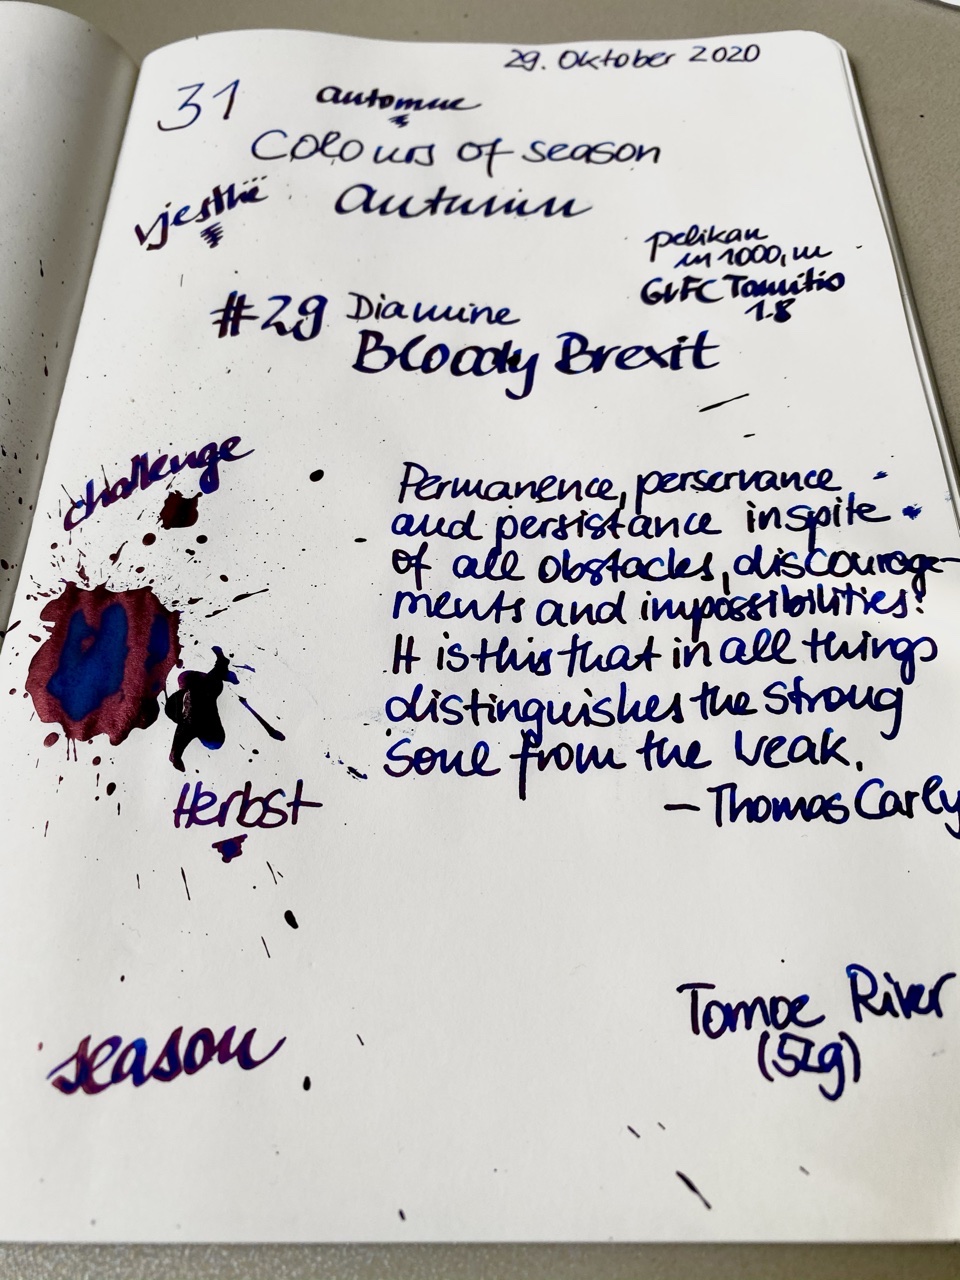 29. Oktober 2020
31
automne
Colours of season
vjeshtë
Autumn
pelikan
m1000, m
GvFC Tamitio
1.8
#29 Diamine
Bloody Brexit
challenge
Permanence, perservance
and persistance inspite
of all obstacles, discourage-
ments and impossibilities:
It is this that in all things
distinguishes the strong
soul from the weak.
— Thomas Carly
Herbst
Tomoe River
(52g)
season